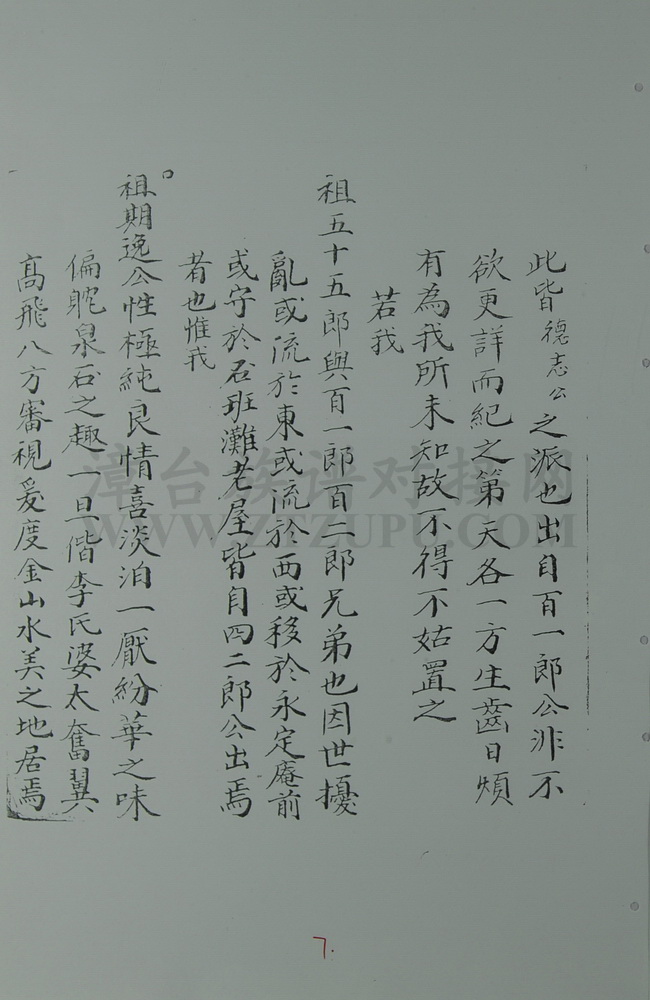 此皆德志公之派也出自百一郎公非不
欲更詳而紀之第天各一方生齒日煩
有為我所未知故不得不姑置之
若我
祖五十五郎與百一郎百二郎兄弟也因世擾
亂或流於東或流於西或移於永定庵前
或守於石班灘老屋皆自四二郎公出焉
者也惟我
祖期逸公性極純良情喜淡泊一厭紛華之味
偏躭泉石之趣一旦偕李氏婆太奮翼
高飛八方審視爰度金山水美之地居焉
漳台族谱对接网
WWW.ZTZUPU.COM
7.